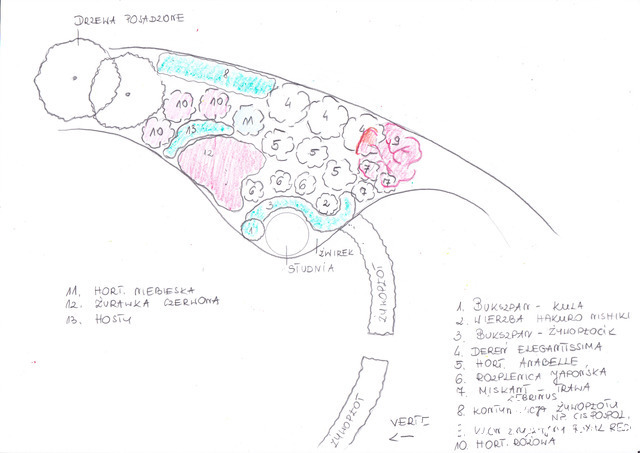 DRZEWA POSADZONE
8
10 10 4 4
11
10 13 4 9
5 5
12 7
5 7
6 6 6 7
6
3 2
1
ŻWIREK
STUDNIA
ŻYWOPŁOT
11. HORT. NIEBIESKA
12. ŻURAWKA CZERWONA
13. HOSTY
1. BUKSZPAN - KULA
2. WIERZBA HAKURO NISHIKI
3. BUKSZPAN - ŻYWOPŁOCIK
4. DEREŃ ELEGANTISSIMA
5. HORT. ANABELLE
6. ROZPLENICA JAPOŃSKA
7. MISKANT - TRAWA
ZEBRINUS
8 ŻYWOPŁOTU
NP. CIS POSPOL.
10. HORT. RÓŻOWA
ŻYWOPŁOT
VERTE